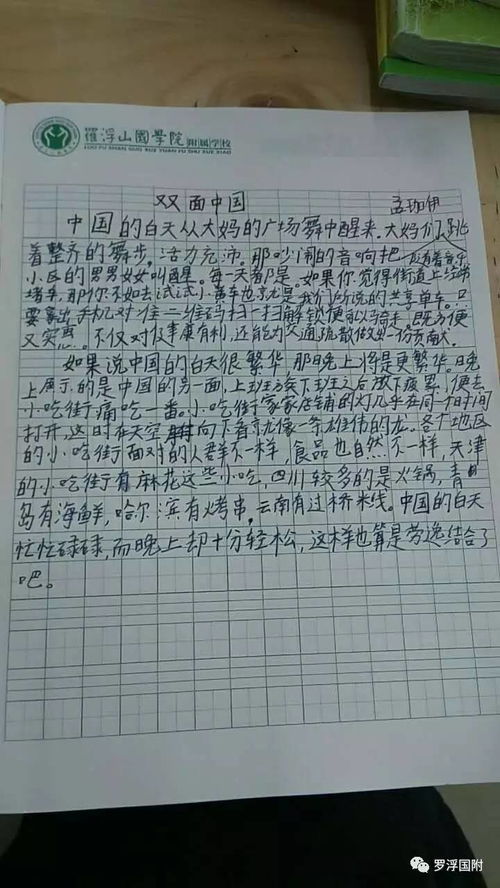 羅浮山國學院附属學校
LUO FU SHAN GUO XUE YUAN FU SHU XUE XIAO
双面中国
孟珈伊
中国的白天从大妈的广场舞中醒来。大妈们跳
着整齐的舞步。活力充沛。那吵闹的音响把
伴着音乐
小区的男男女女叫醒。每一天都是。如果你觉得街道上经常
堵车,那你不如去试试小黄车也就是我们所说的共享单车。只
要拿出手机对准二维码扫一扫解锁便可以骑车。既方便
又实惠。不仅对做事康有利,还能为交通疏散做出一份贡献。
如果说中国的白天很繁华,那晚上将是更繁华。晚
上展示的是中国的另一面,上班族下班之后放下疲累,便去
小吃街痛吃一番。小吃街家家店铺的灯几乎在同一时间
打开,这时在天空向下看就像一条雄伟的龙。各个地区
的小吃街面对的人群不一样,食品也自然不一样,天津
的小吃街有麻花这些小吃,四川较多的是火锅,青
岛有海鲜,哈尔滨有烤串,云南有过桥米线。中国的白天
忙忙碌碌,而晚上却十分轻松,这样也算是劳逸结合了
吧。
罗浮国附